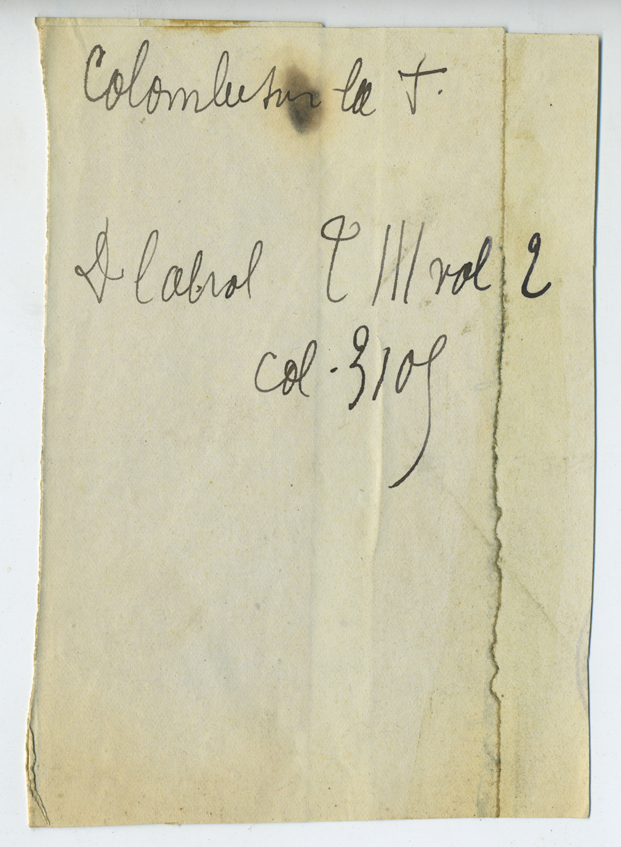 Colombe sur la †.
D Cabrol T III vol 2
col. 3105